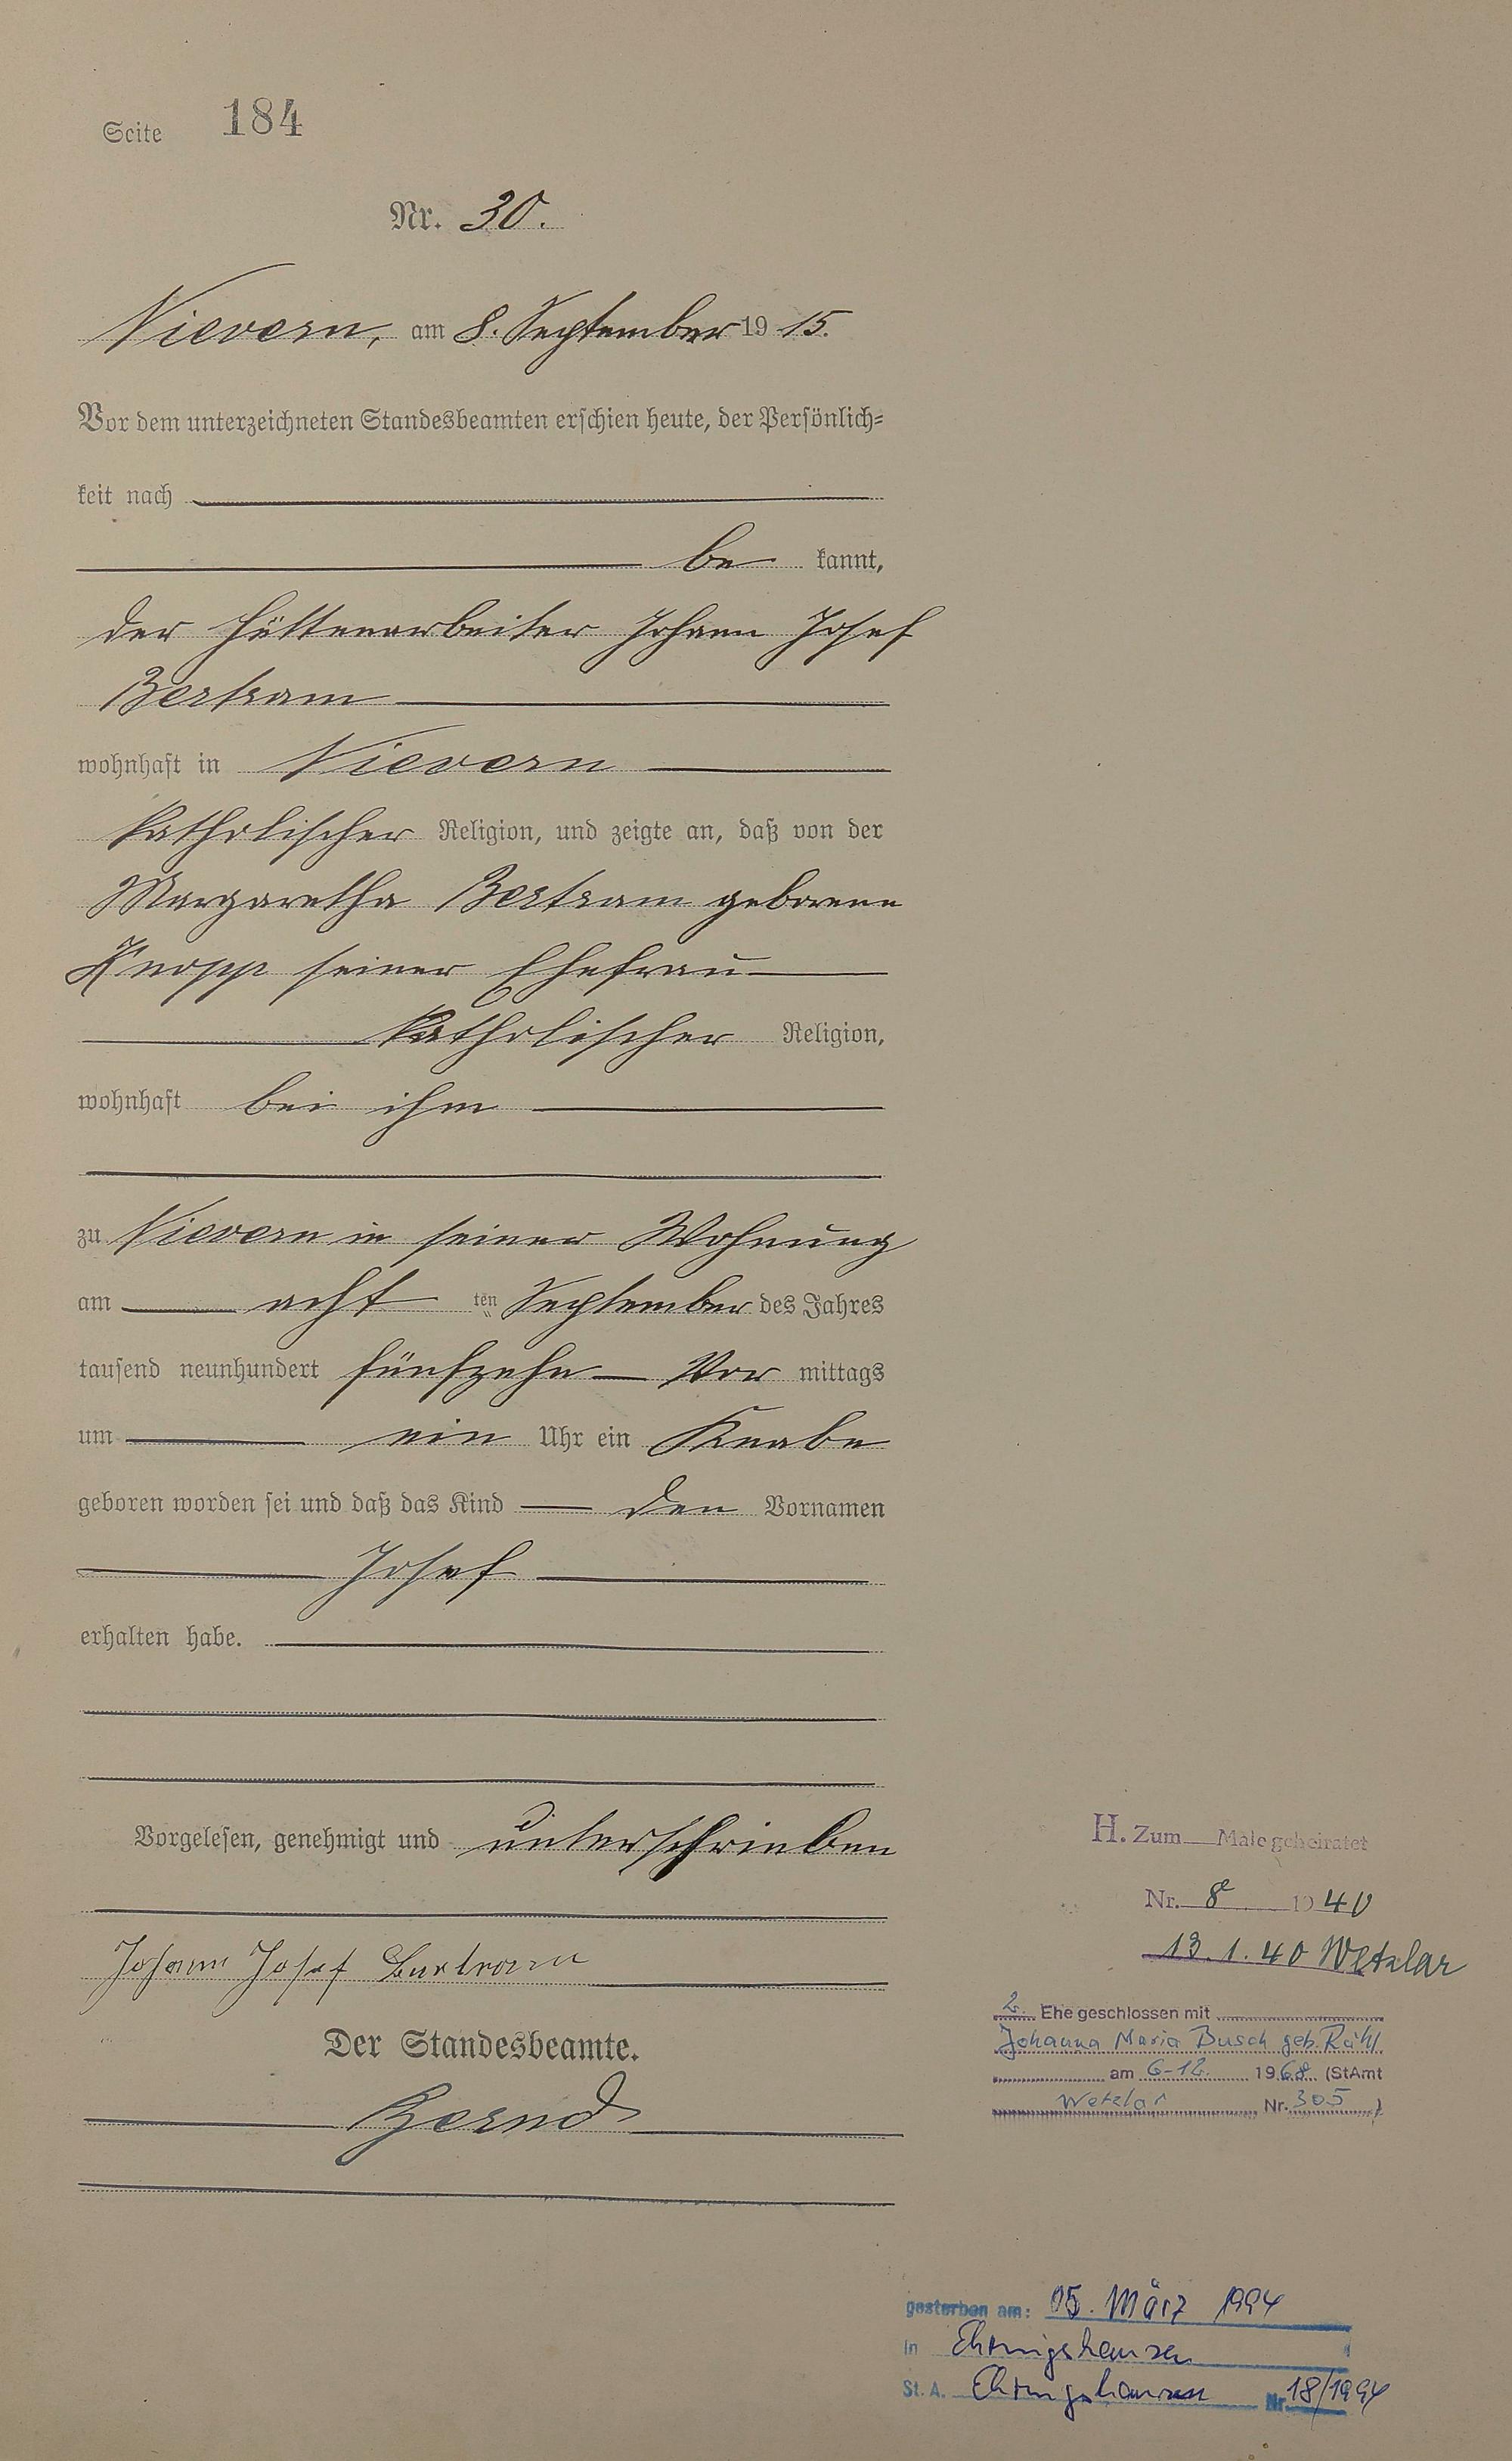 Seite 184
Nr. 30.
Nievern, am 8. September 1915.
Vor dem unterzeichneten Standesbeamten erschien heute, der Persönlich=
keit nach
be kannt,
der Hüttenarbeiter Johann Josef
Bertram
wohnhaft in Nievern
katholischer Religion, und zeigte an, daß von der
Margaretha Bertram geborene
Knopp seiner Ehefrau
katholischer Religion,
wohnhaft bei ihm
zu Nievern in seiner Wohnung
am acht ten September des Jahres
tausend neunhundert fünfzehn Vor mittags
um ein Uhr ein Knabe
geboren worden sei und daß das Kind den Vornamen
Josef
erhalten habe.
Vorgelesen, genehmigt und unterschrieben
Johann Josef Bertram
Der Standesbeamte.
Bernd
H. Zum Male geheiratet
Nr. 8 1940
13.1.40 Wetzlar
2. Ehe geschlossen mit
Johanna Maria Busch geb. Rühl
am 6-12. 1968 (StAmt
Wetzlar Nr. 305 )
gestorben am: 05. März 1994
in Ehringshausen
St. A. Ehringshausen Nr. 18/1994